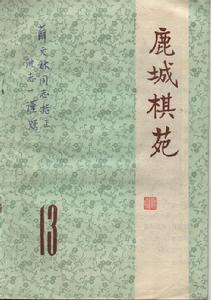 鹿城棋苑
文林同志指正
志一谨赠
13